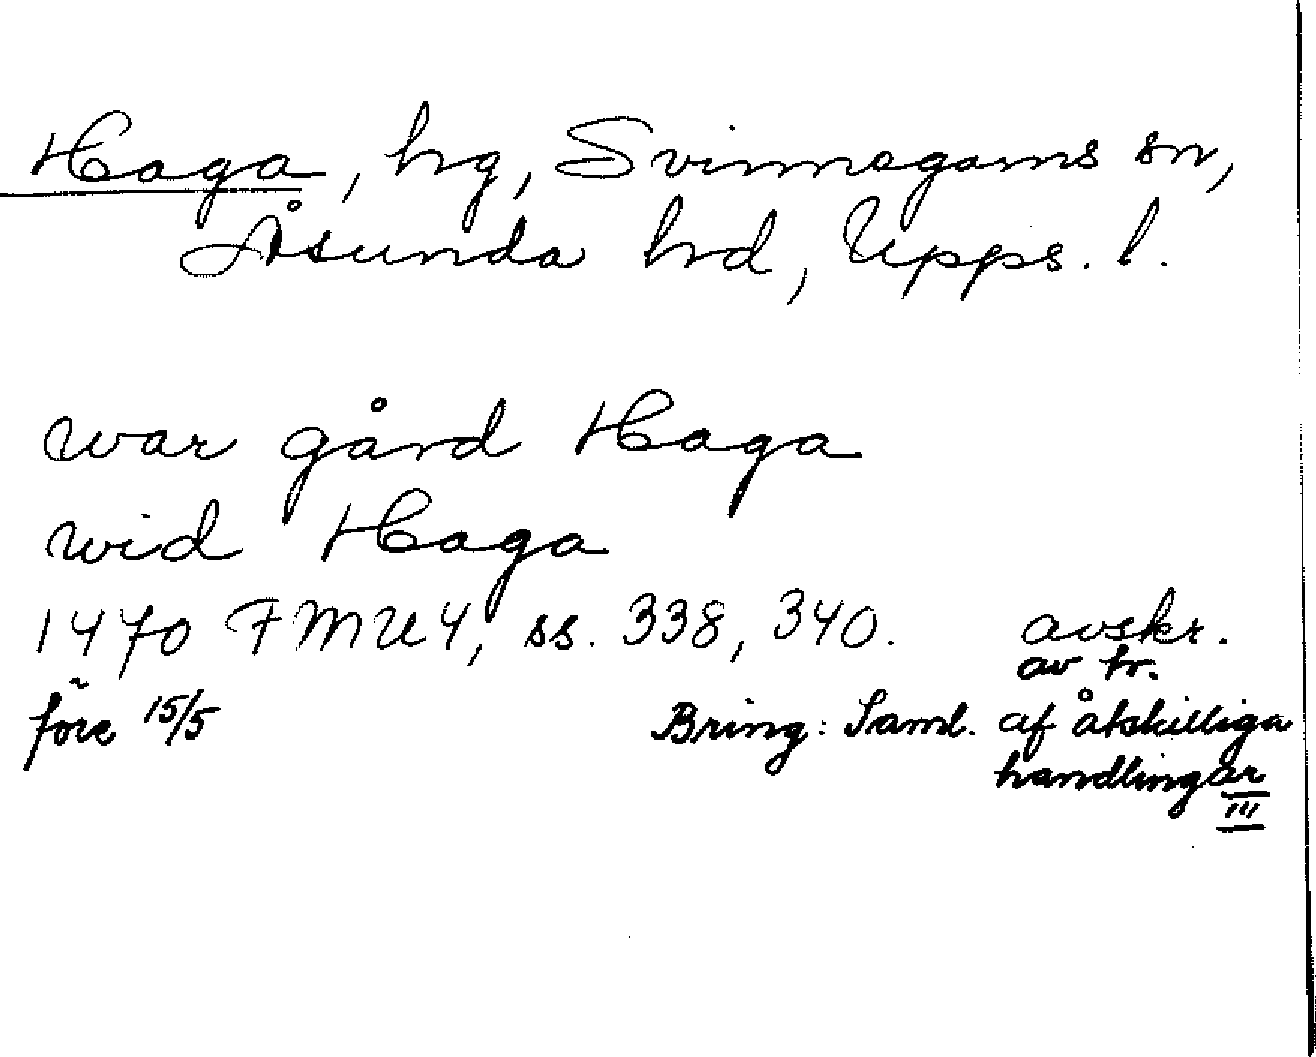 Haga, hg, Svinnegarns sn,
Åsunda hd, Upps. l.
war gård Haga
wid Haga
1470 FMU 4, ss. 338, 340. avskr.
av tr.
före 15/5 Bring: Saml. af åtskilliga
handlingar
III